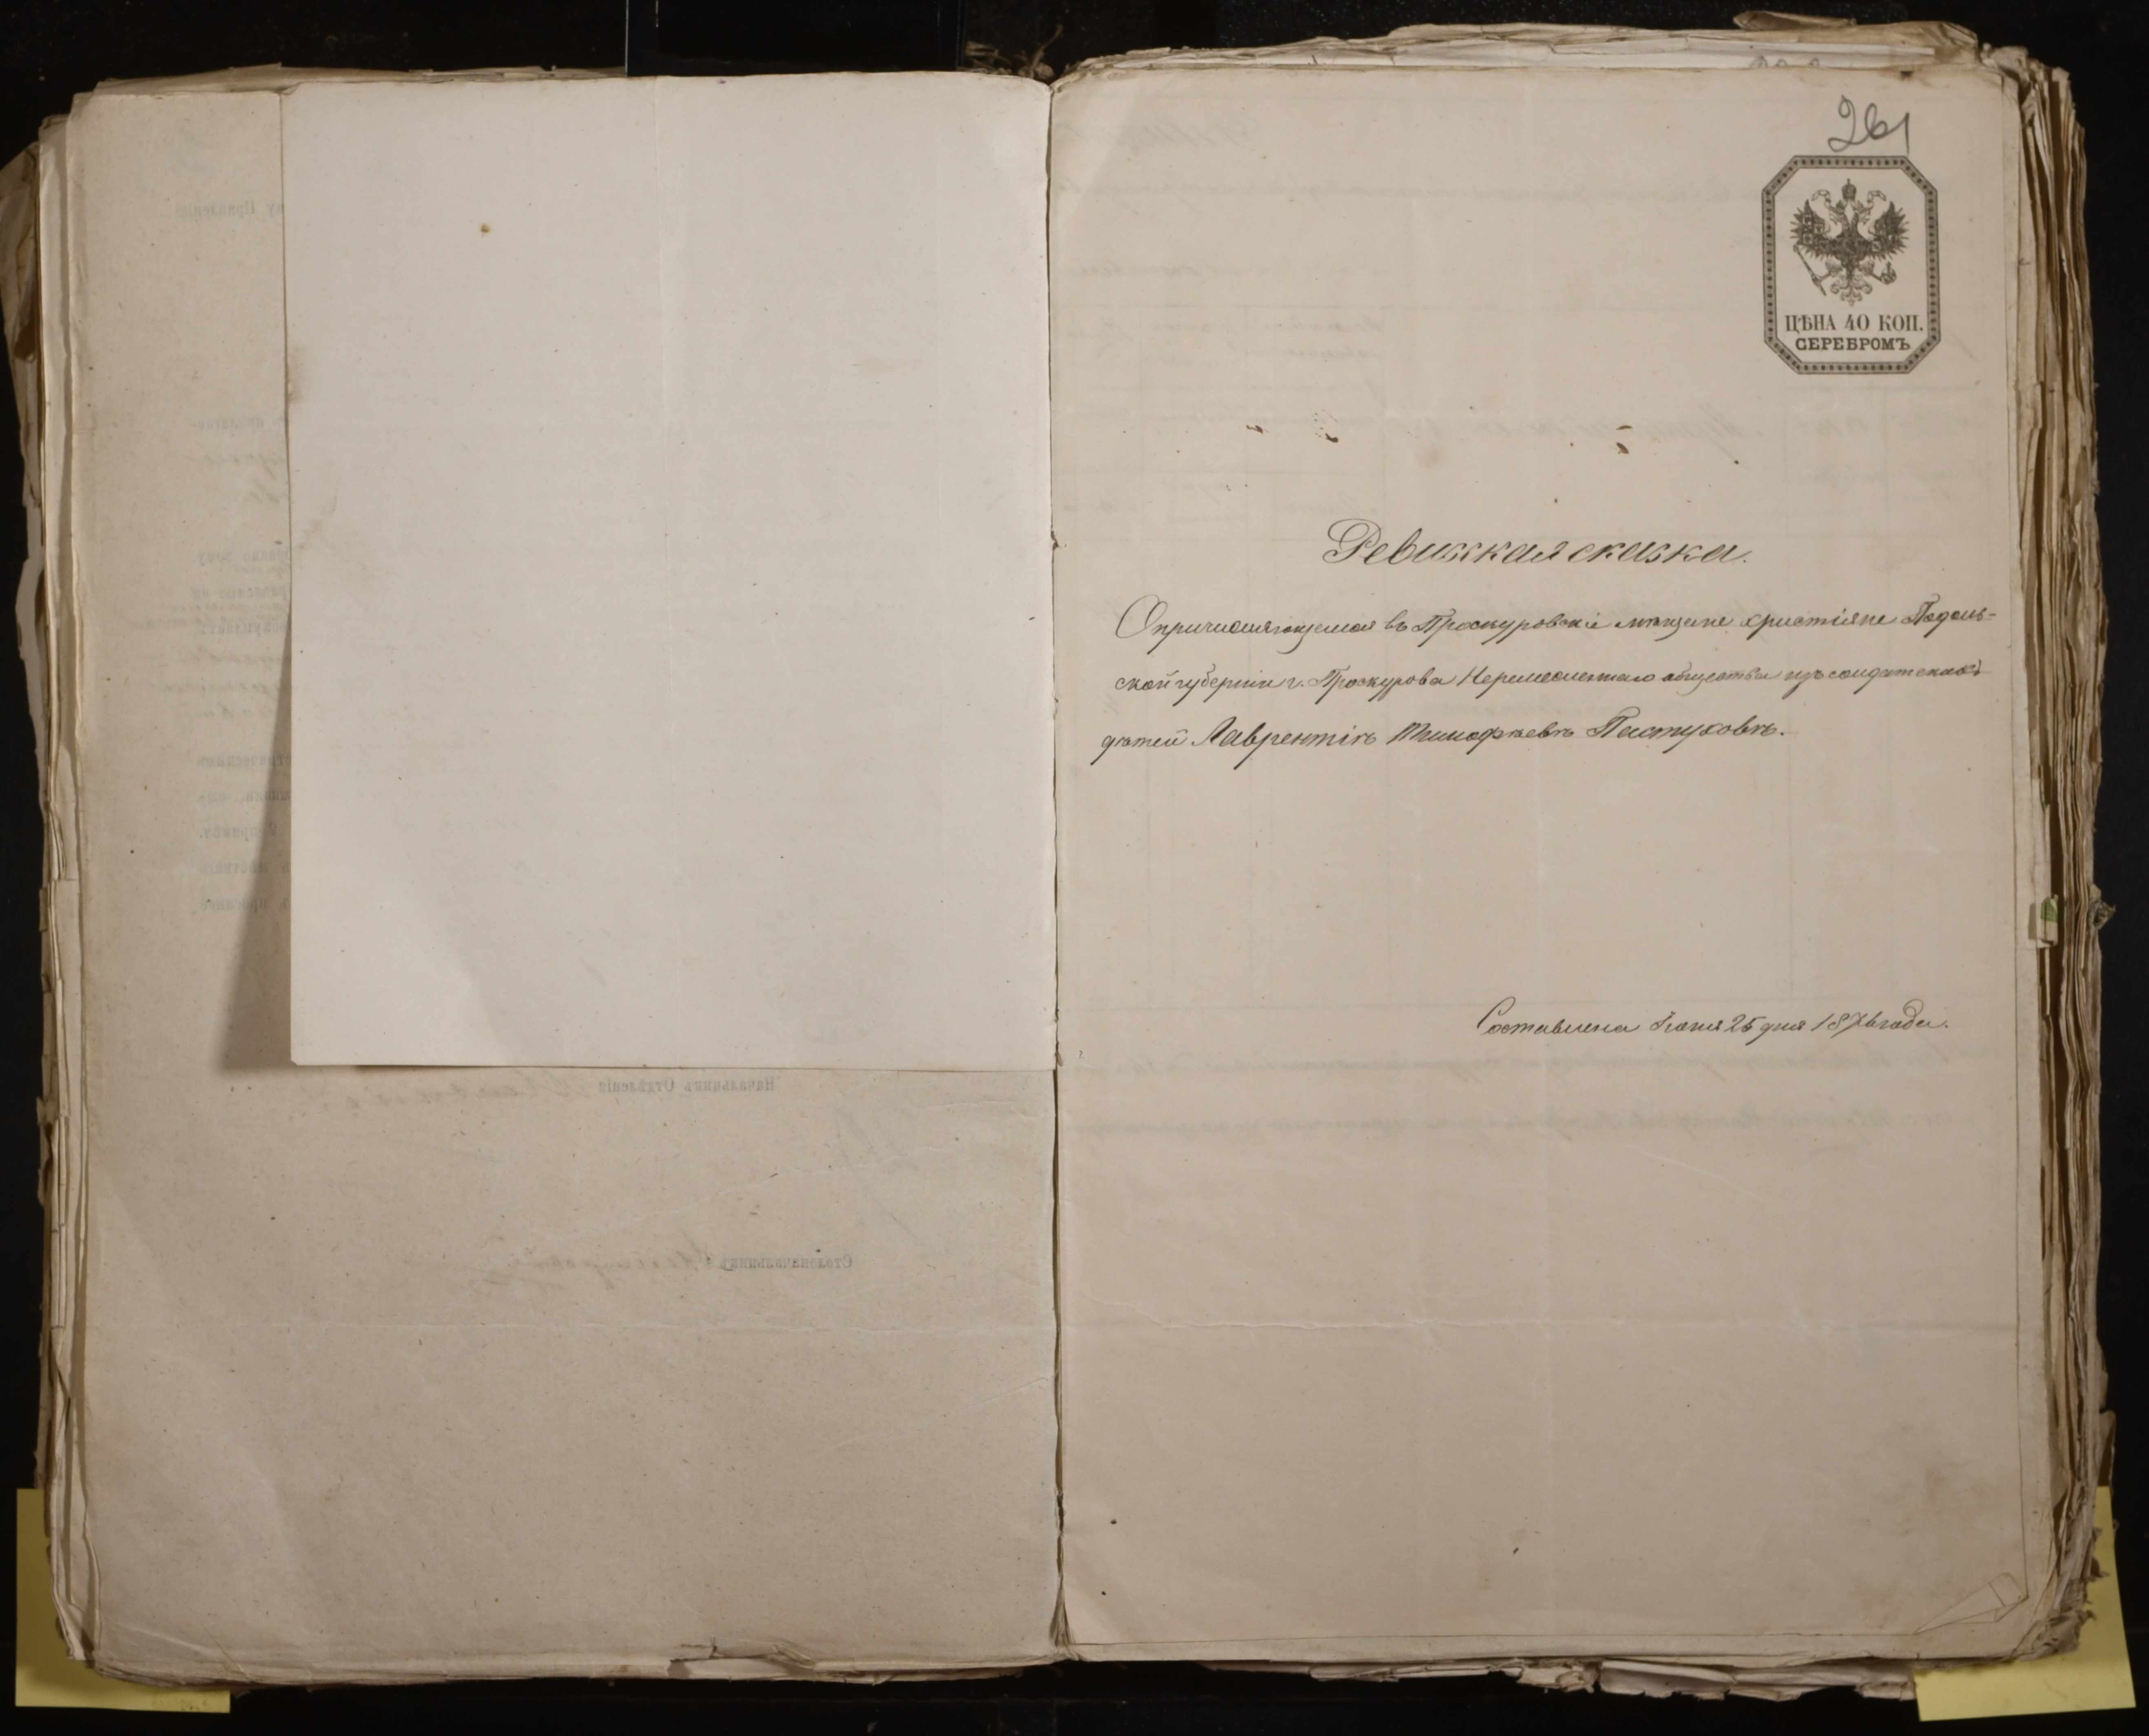 261
ЦѢНА 40 КОП.
СЕРЕБРОМЪ
Ревизская сказка.
О причисляющемся въ Проскуровскіе мѣщане христіяне Подоль-
ской губерніи г. Проскурова общества изъ солдатскихъ
дѣтей Лаврентіѣ Тимофѣевѣ Пастуховѣ.
Составлена Іюня 25 дня 187 года.
Начальникъ Отдѣленія
Столоначальникъ